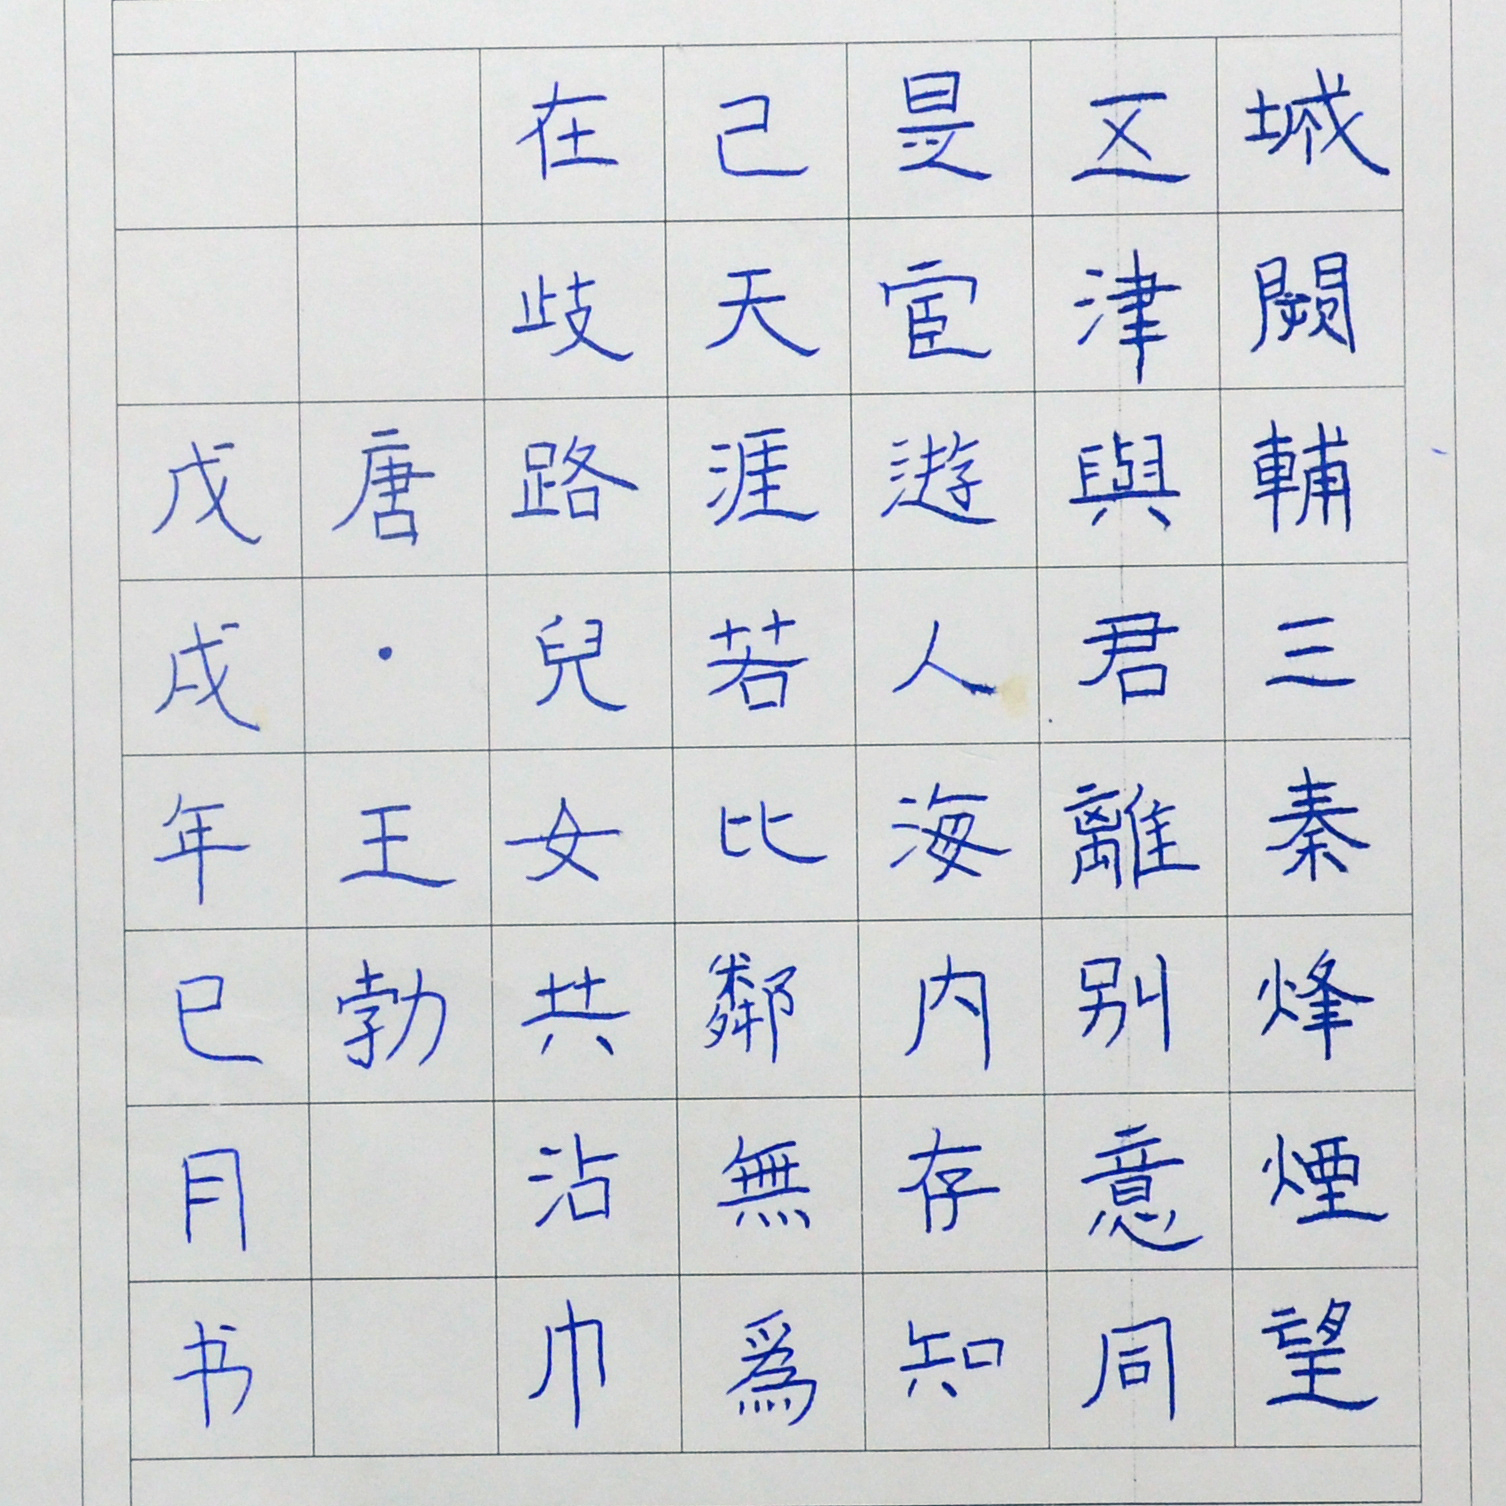 城闕輔三秦烽煙望
五津與君離别意同
是宦遊人海内存知
己天涯若比鄰無爲
在歧路兒女共沾巾
唐·王勃
戊戌年巳月书